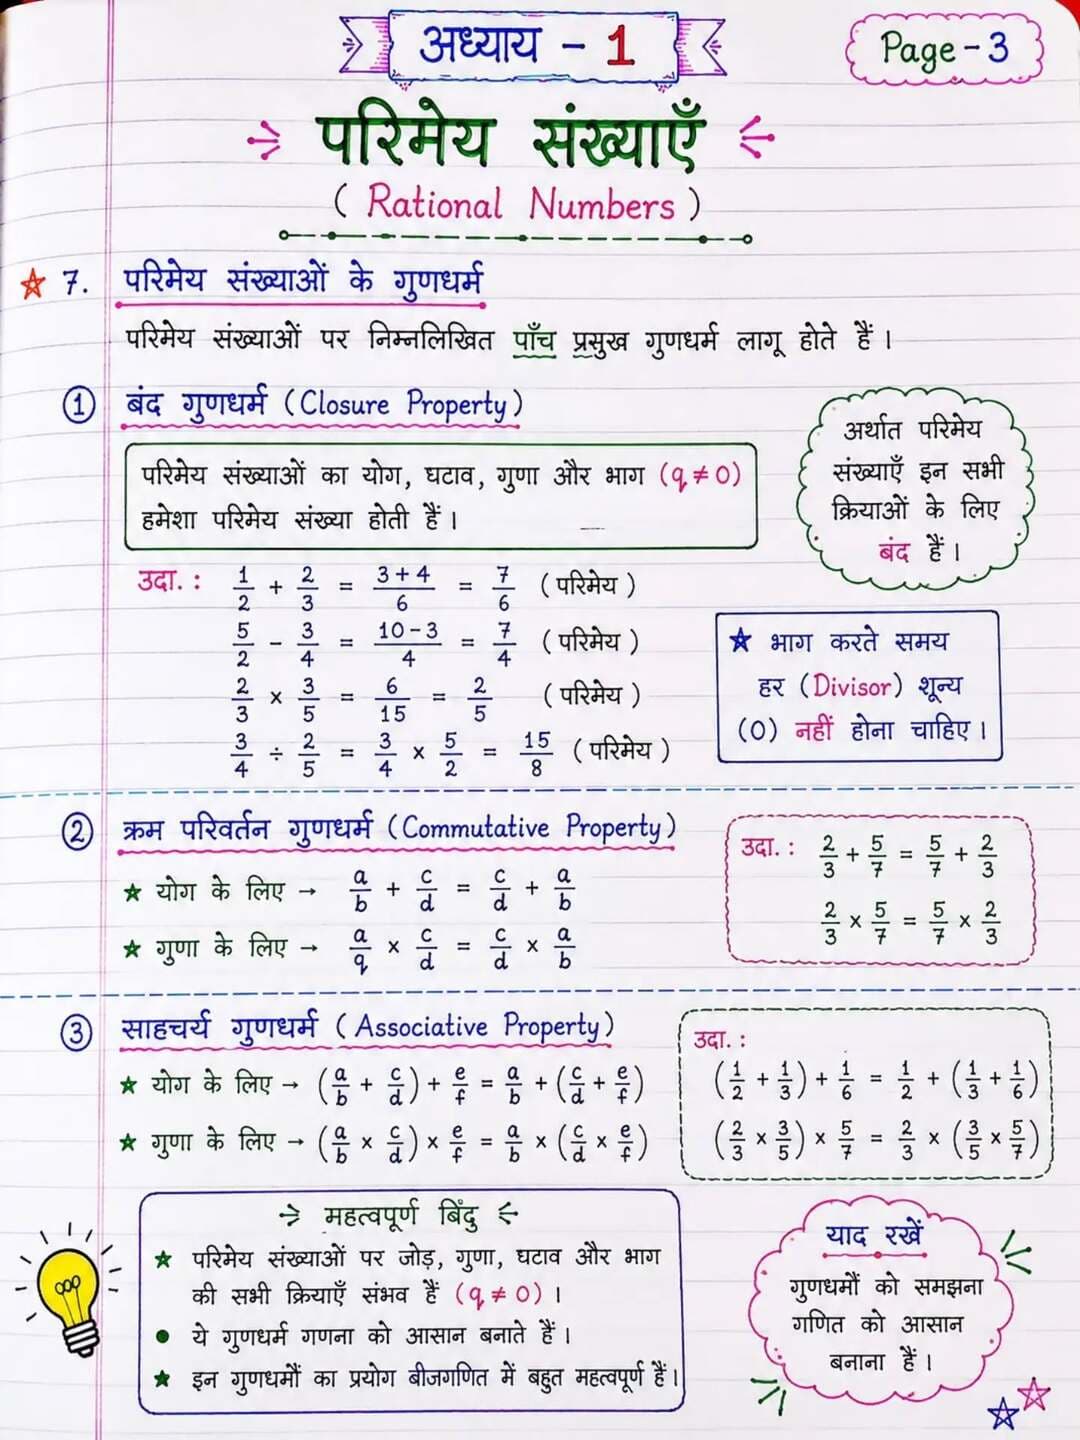 अध्याय - 1
Page - 3
परिमेय संख्याएँ
( Rational Numbers )
7. परिमेय संख्याओं के गुणधर्म
परिमेय संख्याओं पर निम्नलिखित पाँच प्रसुख गुणधर्म लागू होते हैं ।
① बंद गुणधर्म ( Closure Property )
परिमेय संख्याओं का योग, घटाव, गुणा और भाग (q ≠ 0)
हमेशा परिमेय संख्या होती हैं ।
अर्थात परिमेय
संख्याएँ इन सभी
क्रियाओं के लिए
बंद हैं ।
उदा. : 1/2 + 2/3 = (3+4)/6 = 7/6 ( परिमेय )
5/2 - 3/4 = (10-3)/4 = 7/4 ( परिमेय )
2/3 × 3/5 = 6/15 = 2/5 ( परिमेय )
3/4 ÷ 2/5 = 3/4 × 5/2 = 15/8 ( परिमेय )
★ भाग करते समय
हर ( Divisor ) शून्य
(0) नहीं होना चाहिए ।
② क्रम परिवर्तन गुणधर्म ( Commutative Property )
★ योग के लिए → a/b + c/d = c/d + a/b
★ गुणा के लिए → a/q × c/d = c/d × a/b
उदा. : 2/3 + 5/7 = 5/7 + 2/3
2/3 × 5/7 = 5/7 × 2/3
③ साहचर्य गुणधर्म ( Associative Property )
★ योग के लिए → (a/b + c/d) + e/f = a/b + (c/d + e/f)
★ गुणा के लिए → (a/b × c/d) × e/f = a/b × (c/d × e/f)
उदा. :
(1/2 + 1/3) + 1/6 = 1/2 + (1/3 + 1/6)
(2/3 × 3/5) × 5/7 = 2/3 × (3/5 × 5/7)
महत्वपूर्ण बिंदु
★ परिमेय संख्याओं पर जोड़, गुणा, घटाव और भाग
की सभी क्रियाएँ संभव हैं (q ≠ 0) ।
● ये गुणधर्म गणना को आसान बनाते हैं ।
★ इन गुणधर्मों का प्रयोग बीजगणित में बहुत महत्वपूर्ण हैं ।
याद रखें
गुणधर्मों को समझना
गणित को आसान
बनाना हैं ।